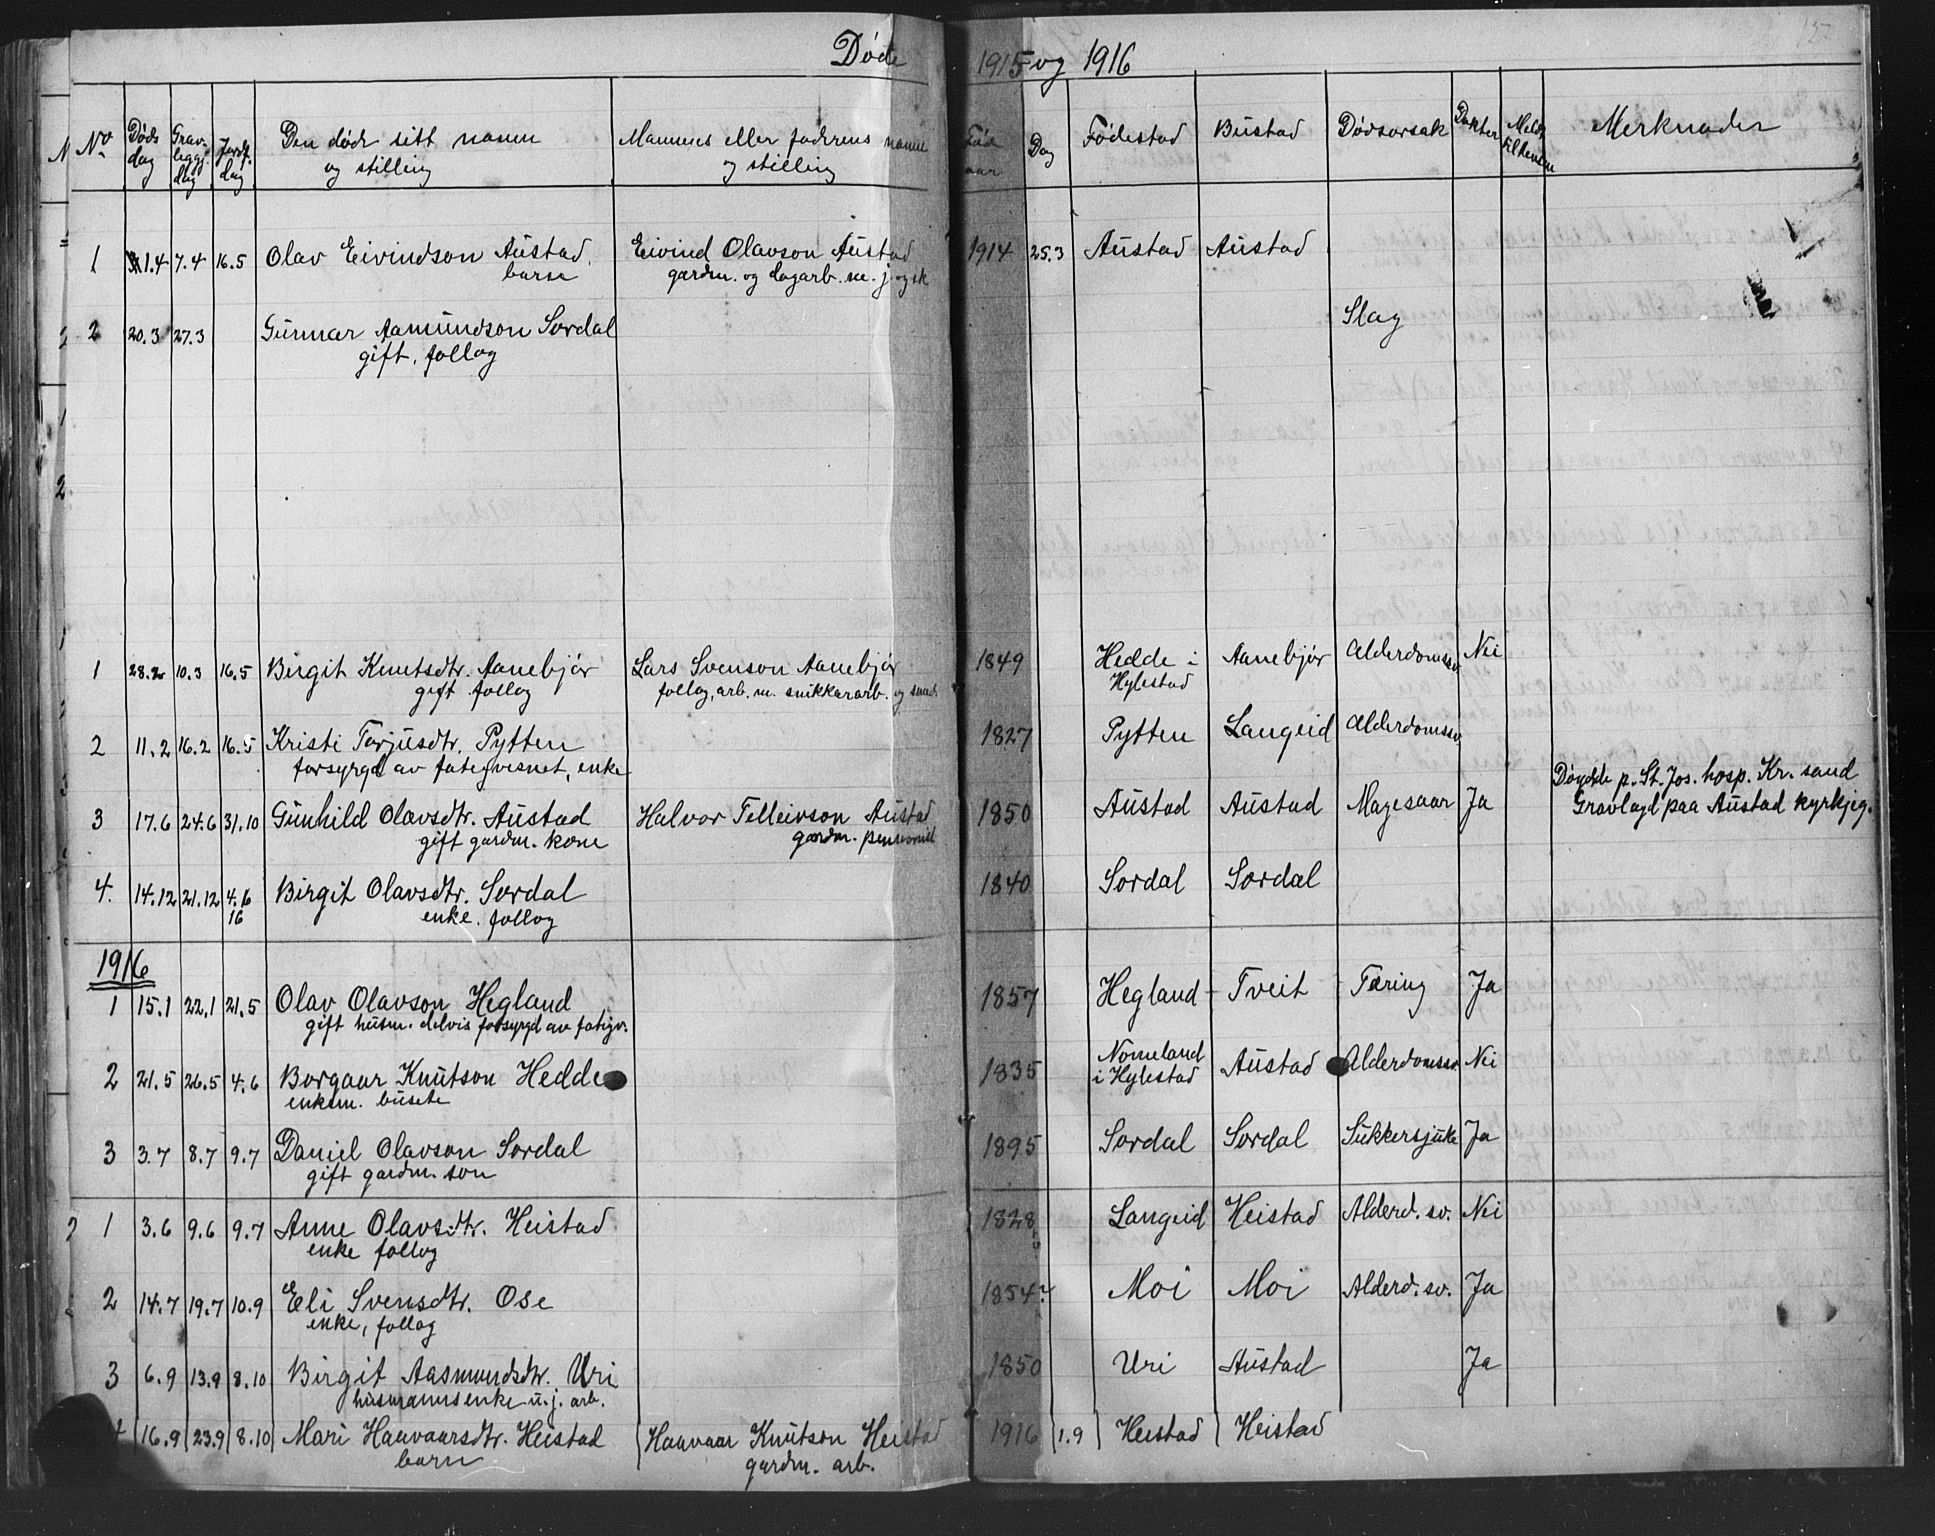 Døde 1915 og 1916
No Døds dag Grav-leggj. dag Jordf. dag Den døde sitt namn og stilling Mannens eller faderens namn og stilling Fød. aar Dag Fødestad Bustad Dødsorsak Dokter Meld. Merknader
1 1.4 7.4 16.5 Olav Eivindson Austad. Eivind Olavson Austad 1914 25.3 Austad Austad
barn gardm. og dagarb. m. j. og sk
2 20.3 27.3 Gunnar Aamundson Sordal Slag
gift, follog
1 28.2 10.3 16.5 Birgit Knutsdtr. Aanebjør Lars Svenson Aanebjør 1849 Hedde i Hylestad Aanebjør Alderdomssv. Nei
gift follog follog, arb. m. snikkararb. og smed.
2 11.2 16.2 16.5 Kristi Tarjusdtr. Pytten 1827 Pytten Langeid Alderdomssv.
forsyrgd av fategvesnet, enke
3 17.6 24.6 31.10 Gunhild Olavsdtr. Austad Halvor Telleivson Austad 1850 Austad Austad Magesaar Ja Døydde p. St. Jos. hosp. Kr. sand
gift gardm. kone gardm. pensionist Gravlagd paa Austad kyrkjeg.
4. 14.12 21.12 4.6 16 Birgit Olavsdtr. Sordal 1840 Sordal Sordal
enke. follog
1916
1 15.1 22.1 21.5 Olav Olavson Hegland 1857 Hegland Tveit Tæring Ja
gift husm. delvis forsyrgd av fatigv.
2 21.5 26.5 4.6 Borgaar Knutson Hedde 1835 Nomeland i Hylestad Austad Alderdomssv. Nei
enkem. busete
3 3.7 8.7 9.7 Daniel Olavson Sordal 1895 Sordal Sordal Sukkersjuke Ja
gift gardm. son
1 3.6 9.6 9.7 Anne Olavsdtr. Heistad 1828 Langeid Heistad Alderd. sv. Nei
enke follog
2 14.7 19.7 10.9 Eli Svensdtr. Ose 1854? Moi Moi Alderd. sv. Ja
enke, follog
3 6.9 13.9 8.10 Birgit Aasmundsdtr. Uri 1850 Uri Austad Ja
husmannsenke u. j. arb.
4 16.9 23.9 8.10 Mari Haavaarsdtr. Heistad Haavaar Knutson Heistad 1916 1.9 Heistad Heistad
barn gardm. arb.